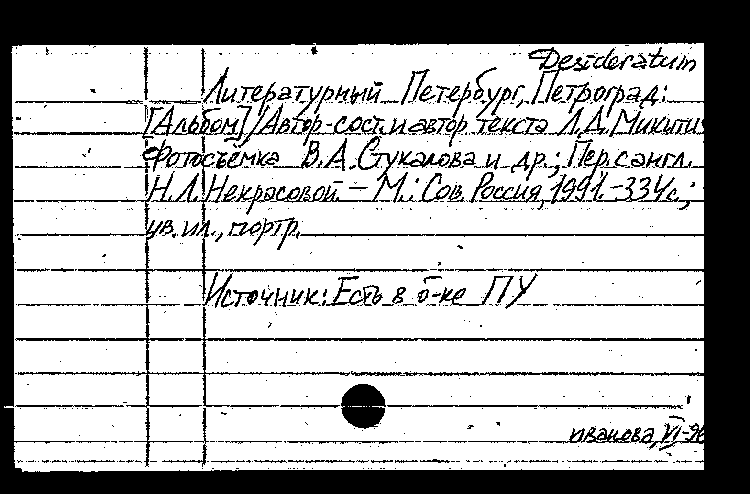 Desideratum
Литературный Петербург, Петроград:
[Альбом] / Автор-сост. и автор текста Л.Д. Микити
Фотосъемка В.А. Стукалова и др.; Пер. с англ.
Н.Л. Некрасовой. — М.: Сов. Россия, 1991. - 334 с.;
цв. ил., портр.
Источник: Есть в б-ке ПУ
иванова, VI-96